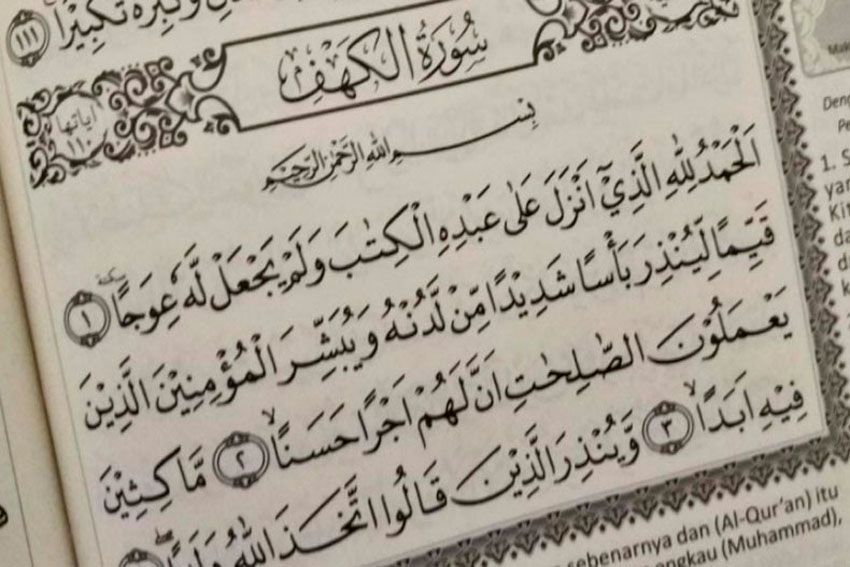 وَكَبِّرْهُ تَكْبِيْرًا ࣖ ١١١
سُوْرَةُ الْكَهْفِ
اٰيَاتُهَا
١١٠
بِسْمِ اللّٰهِ الرَّحْمٰنِ الرَّحِيْمِ
اَلْحَمْدُ لِلّٰهِ الَّذِيْٓ اَنْزَلَ عَلٰى عَبْدِهِ الْكِتٰبَ وَلَمْ يَجْعَلْ لَّهٗ عِوَجًا ۜ ١
قَيِّمًا لِّيُنْذِرَ بَأْسًا شَدِيْدًا مِّنْ لَّدُنْهُ وَيُبَشِّرَ الْمُؤْمِنِيْنَ الَّذِيْنَ
يَعْمَلُوْنَ الصّٰلِحٰتِ اَنَّ لَهُمْ اَجْرًا حَسَنًاۙ ٢ مَّاكِثِيْنَ
فِيْهِ اَبَدًاۙ ٣ وَّيُنْذِرَ الَّذِيْنَ قَالُوا اتَّخَذَ اللّٰهُ وَلَدًا
1. S
sebenarnya dan (Al-Qur'an) itu
engkau (Muhammad),